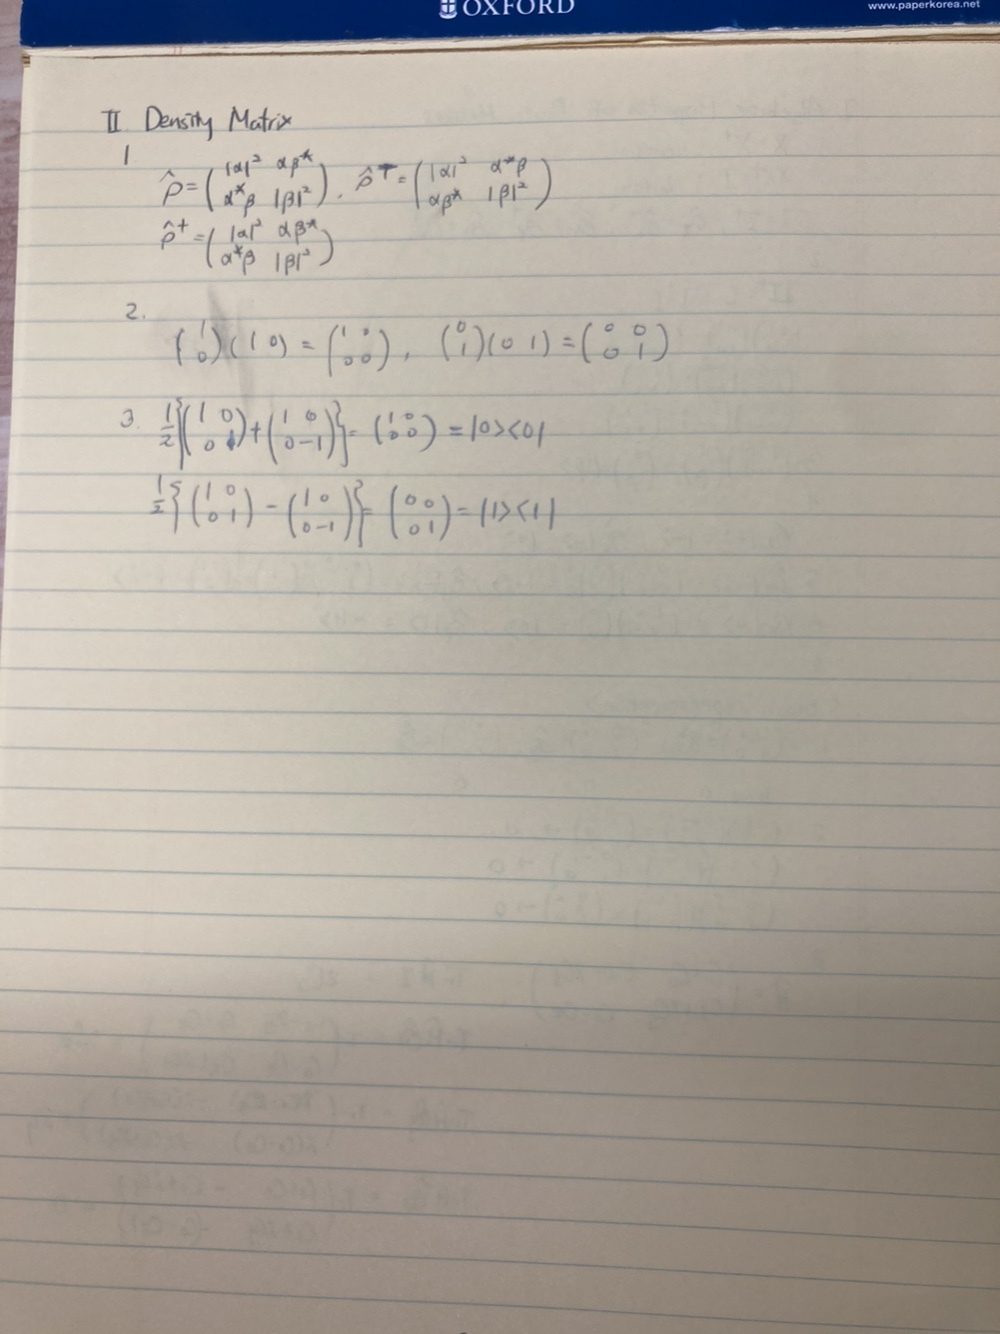 OXFORD
www.paperkorea.net
II Density Matrix
1
ρ̂ = (|α|² αβ* / α*β |β|²), ρ̂ᵀ = (|α|² α*β / αβ* |β|²)
ρ̂† = (|α|² αβ* / α*β |β|²)
2.
(1 / 0)(1 0) = (1 0 / 0 0), (0 / 1)(0 1) = (0 0 / 0 1)
3. 1/2{(1 0 / 0 1) + (1 0 / 0 -1)} = (1 0 / 0 0) = |0><0|
1/2{(1 0 / 0 1) - (1 0 / 0 -1)} = (0 0 / 0 1) = |1><1|